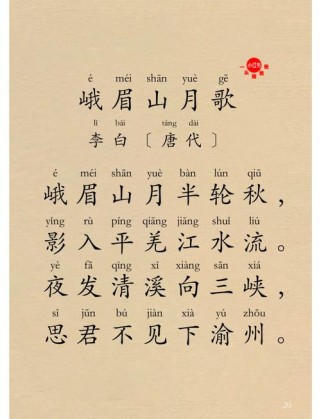 é méi shān yuè gē
峨眉山月歌
lǐ bái táng dài
李白〔唐代〕
é méi shān yuè bàn lún qiū
峨眉山月半轮秋，
yíng rù píng qiāng jiāng shuǐ liú
影入平羌江水流。
yè fā qīng xī xiàng sān xiá
夜发清溪向三峡，
sī jūn bú jiàn xià yú zhōu
思君不见下渝州。
20